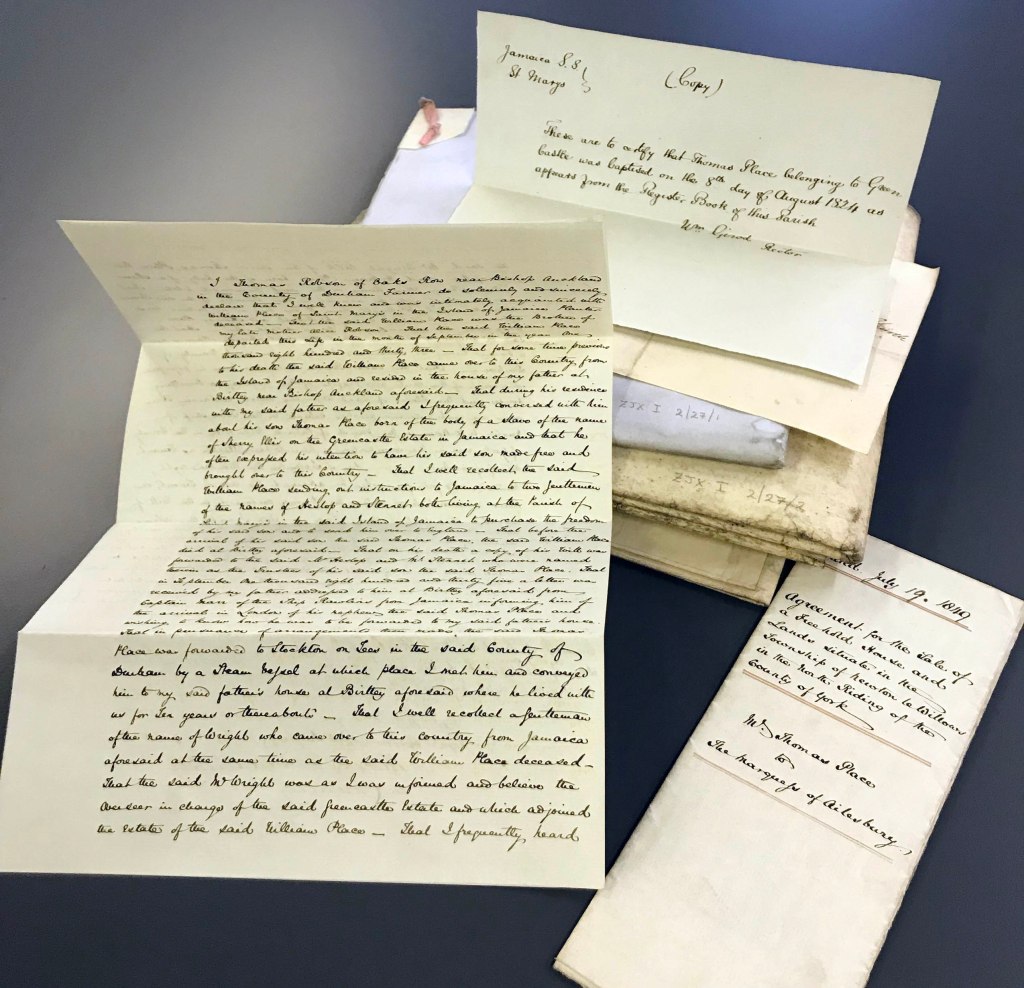 Jamaica S.S
St Marys
(Copy)
These are to certify that Thomas Place belonging to Green
Castle was baptised on the 8th day of August 1824 as
appears from the Register Book of this Parish
Wm Girod Rector
I Thomas Robson of Oaks Row near Bishop Auckland
in the County of Durham Farmer do solemnly and sincerely
declare that I well knew and was intimately acquainted with
William Place of Saint Mary's in the Island of Jamaica Planter
deceased – That the said William Place was the Brother of
my late Mother Alice Robson – That the said William Place
departed this life in the month of September in the year One
thousand eight hundred and thirty three – That for some time previous
to his death the said William Place came over to this Country from
the Island of Jamaica and resided in the house of my father at
Birtley near Bishop Auckland aforesaid – That during his residence
with my said father as aforesaid I frequently conversed with him
about his son Thomas Place born of the body of a Slave of the name
of Sherry Ellis on the Greencastle Estate in Jamaica and that he
often expressed his intention to have his said son made free and
brought over to this Country – That I well recollect the said
William Place sending out instructions to Jamaica to two gentlemen
of the names of Heslop and Stennet both living at the Parish of
Saint Mary's in the said Island of Jamaica to purchase the freedom
of his said son and to send him over to England – That before the
arrival of his said son the said Thomas Place, the said William Place
died at Birtley aforesaid – That on his death a copy of his Will was
forwarded to the said Mr Heslop and Mr Stennet who were named
therein as the Trustees of his said son the said Thomas Place. That
in September One thousand eight hundred and thirty five a letter was
received by my father addressed to him at Birtley aforesaid from
Captain Marr of the Ship from Jamaica informing him of
the arrival in London of his nephew the said Thomas Place and
wishing to know how he was to be forwarded to my said father's house
That in pursuance of arrangements then made the said Thomas
Place was forwarded to Stockton on Tees in the said County of
Durham by a Steam Vessel at which place I met him and conveyed
him to my said father's house at Birtley aforesaid where he lived with
us for Ten years or thereabouts – That I well recollect a gentleman
of the name of Wright who came over to this country from Jamaica
aforesaid at the same time as the said William Place deceased –
That the said Mr Wright was as I was informed and believe the
Overseer in charge of the said Greencastle Estate and which adjoined
the Estate of the said William Place – That I frequently heard
ZJX I 2/27/1
ZJX I 2/27/2
July 19. 1849
Agreement for the Sale of
a Freehold House and
Lands situate in the
Township of Newton le Willows
in the North Riding of the
County of York
Mr Thomas Place
to
The Marquess of Ailesbury